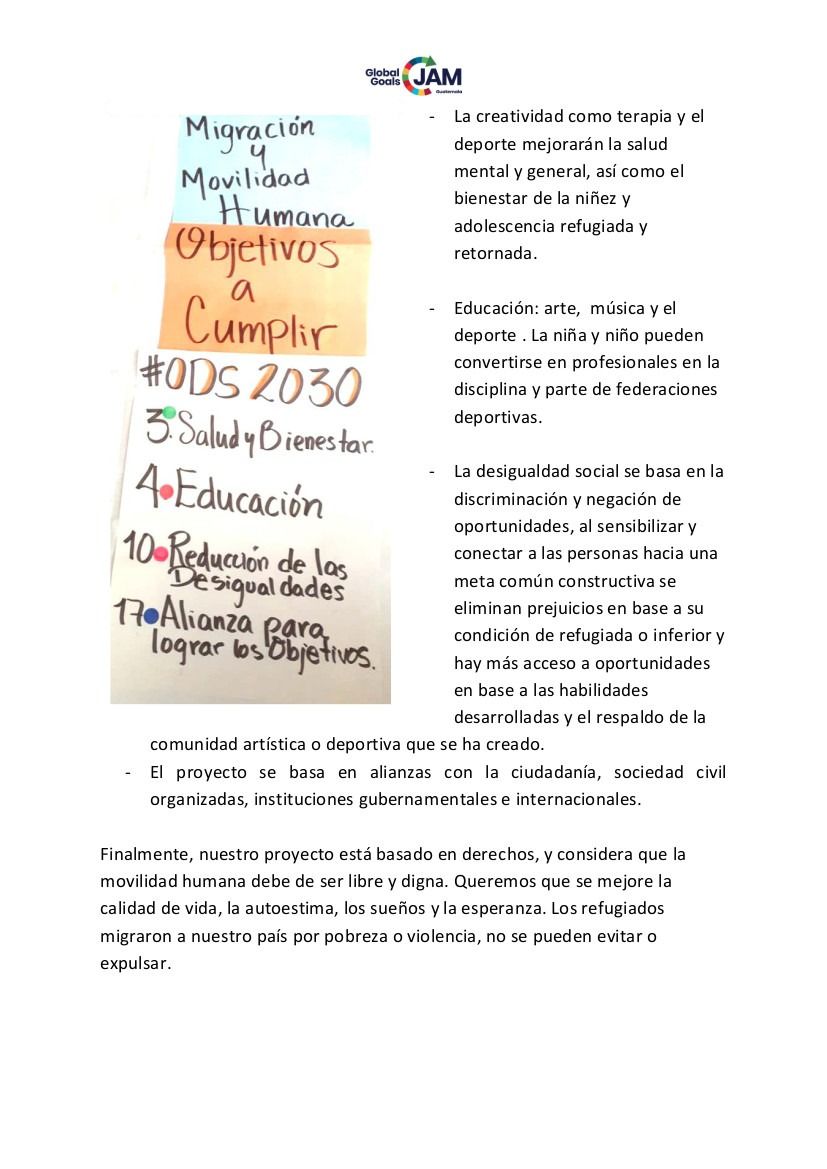 Global
Goals
JAM
Guatemala
Migración
y
Movilidad
Humana
Objetivos
a
Cumplir
#ODS 2030
3. Salud y Bienestar.
4. Educación
10. Reducción de las
Desigualdades
17. Alianza para
lograr los Objetivos.
- La creatividad como terapia y el
deporte mejorarán la salud
mental y general, así como el
bienestar de la niñez y
adolescencia refugiada y
retornada.
- Educación: arte, música y el
deporte . La niña y niño pueden
convertirse en profesionales en la
disciplina y parte de federaciones
deportivas.
- La desigualdad social se basa en la
discriminación y negación de
oportunidades, al sensibilizar y
conectar a las personas hacia una
meta común constructiva se
eliminan prejuicios en base a su
condición de refugiada o inferior y
hay más acceso a oportunidades
en base a las habilidades
desarrolladas y el respaldo de la
comunidad artística o deportiva que se ha creado.
- El proyecto se basa en alianzas con la ciudadanía, sociedad civil
organizadas, instituciones gubernamentales e internacionales.
Finalmente, nuestro proyecto está basado en derechos, y considera que la
movilidad humana debe de ser libre y digna. Queremos que se mejore la
calidad de vida, la autoestima, los sueños y la esperanza. Los refugiados
migraron a nuestro país por pobreza o violencia, no se pueden evitar o
expulsar.